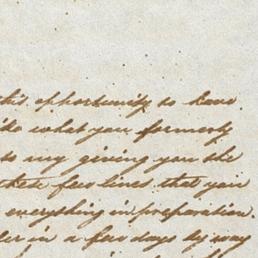 this opportunity to have
what you formerly
to my giving you the
these few lines that you
everything in preparation.
in a few days by way